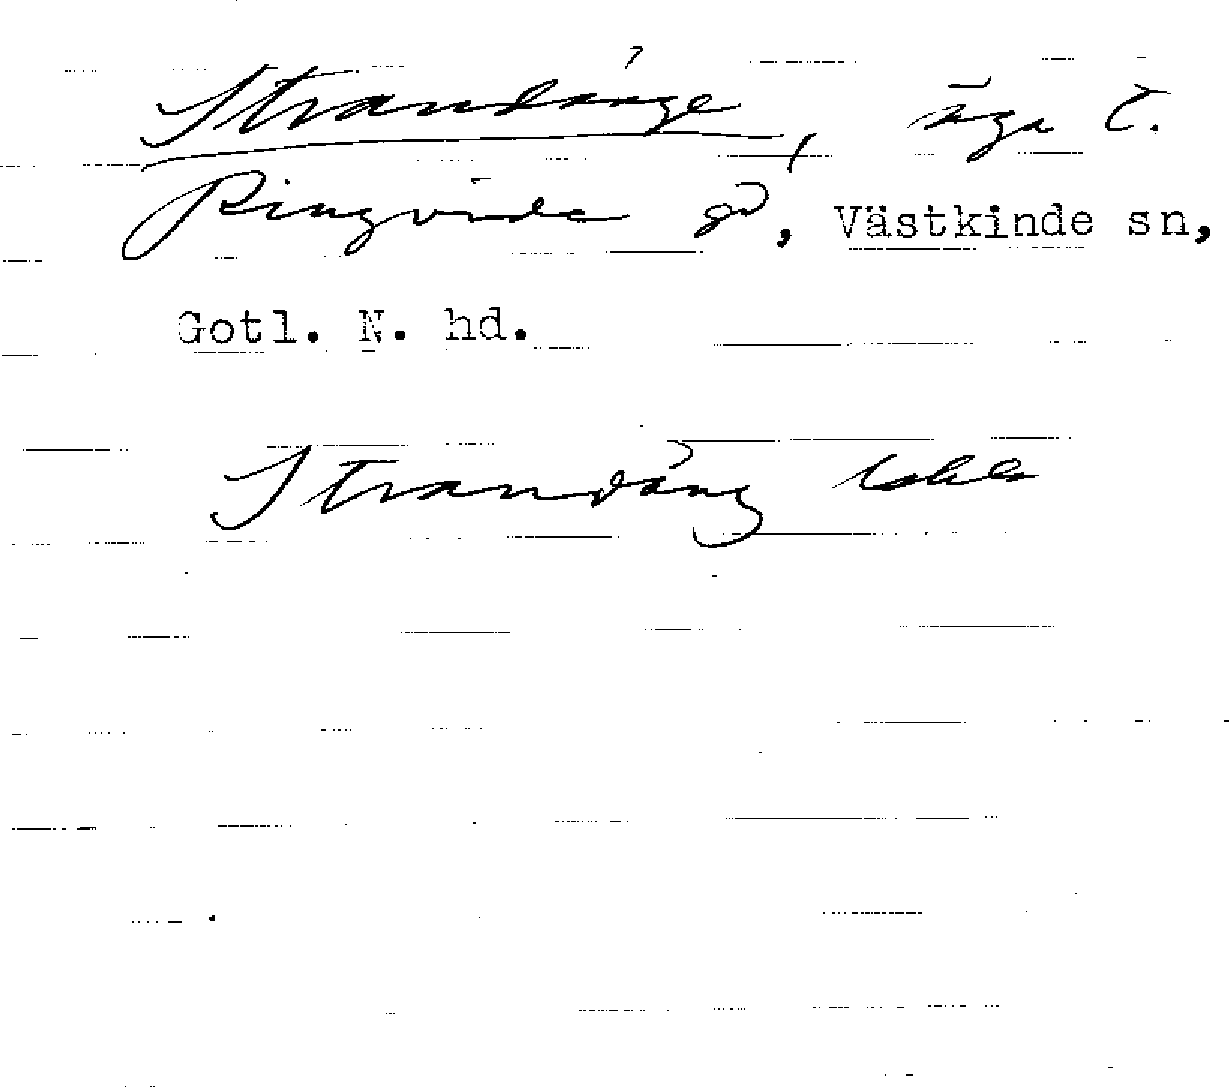 Strandänge, äga t.
Ringvide gd, Västkinde sn,
Gotl. N. hd.
Strandäng